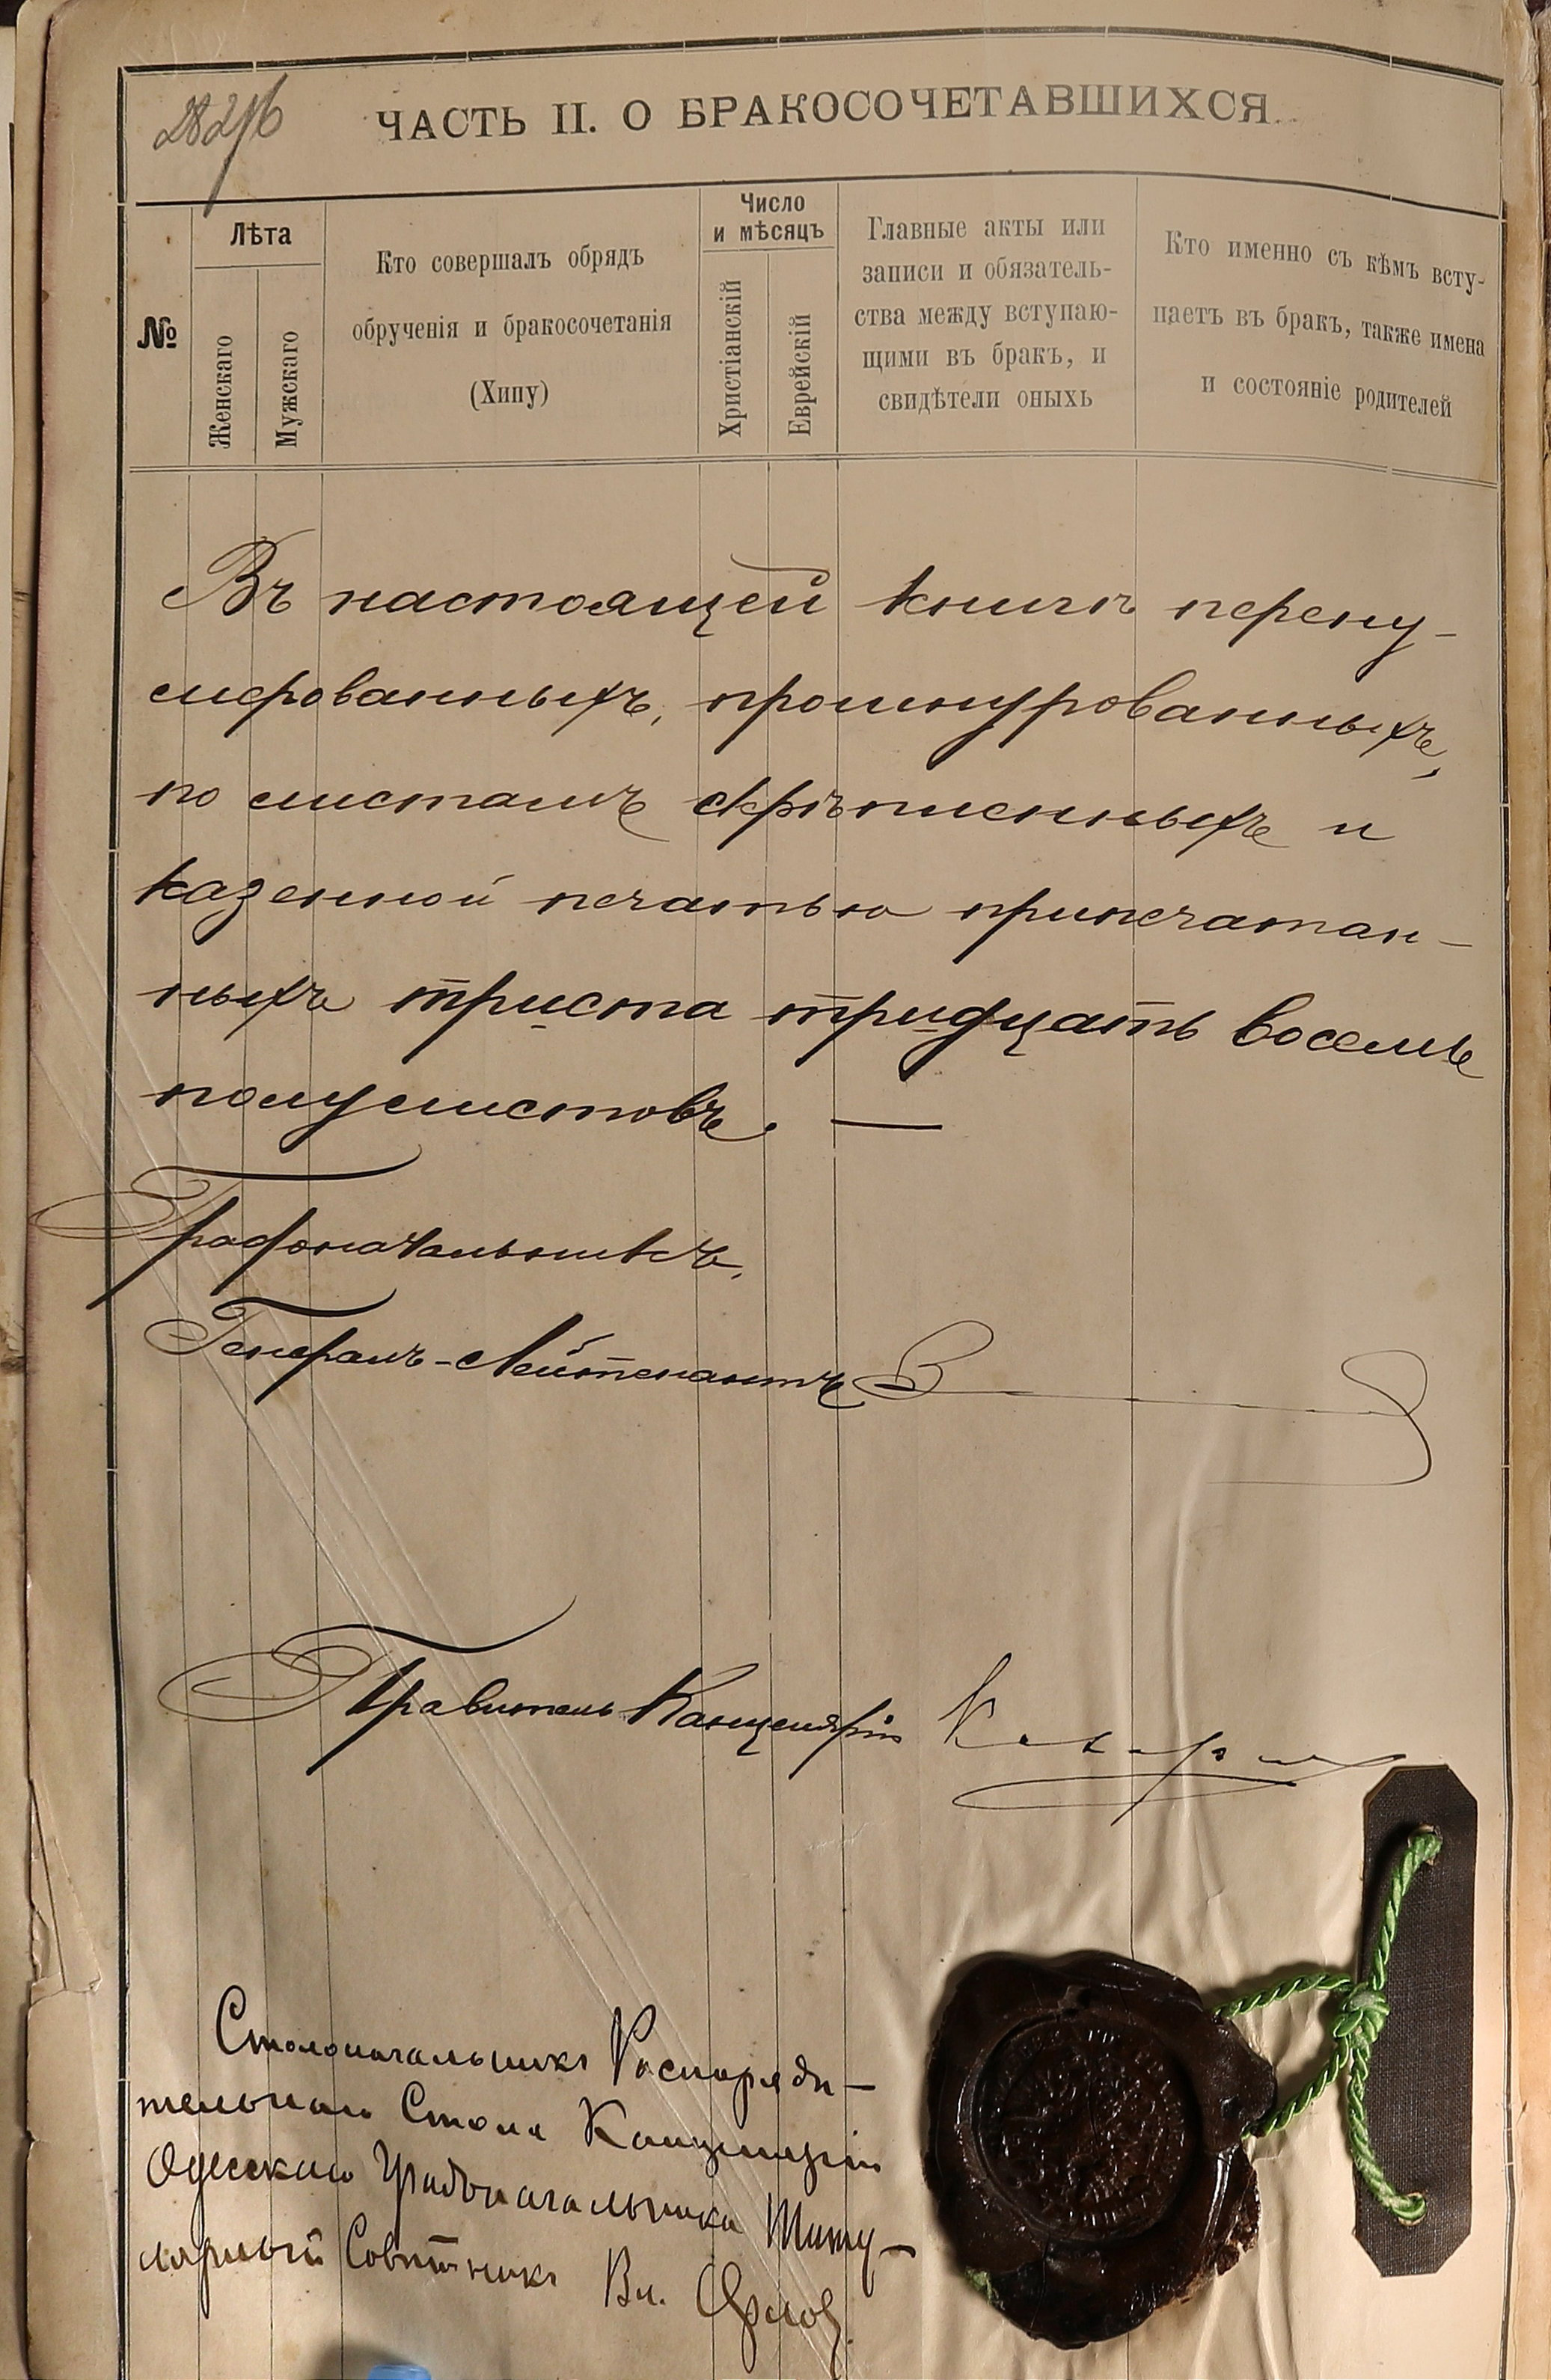 28216
ЧАСТЬ II. О БРАКОСОЧЕТАВШИХСЯ.
№
Лѣта
Женскаго
Мужскаго
Кто совершалъ обрядъ
обрученія и бракосочетанія
(Хипу)
Число
и мѣсяцъ
Христіанскій
Еврейскій
Главные акты или
записи и обязатель-
ства между вступаю-
щими въ бракъ, и
свидѣтели оныхъ
Кто именно съ кѣмъ всту-
паетъ въ бракъ, также имена
и состояніе родителей
Въ настоящей книгѣ перену-
мерованныхъ, прошнурованныхъ,
по листамъ скрѣпленныхъ и
казенной печатью припечатан-
ныхъ триста тридцать восемь
полулистовъ. —
Градоначальникъ,
Генералъ-Лейтенантъ
Правитель Канцеляріи
Столоначальникъ Распоряди-
тельнаго Стола Канцеляріи
Одесскаго Градоначальника Титу-
лярный Совѣтникъ Вл.